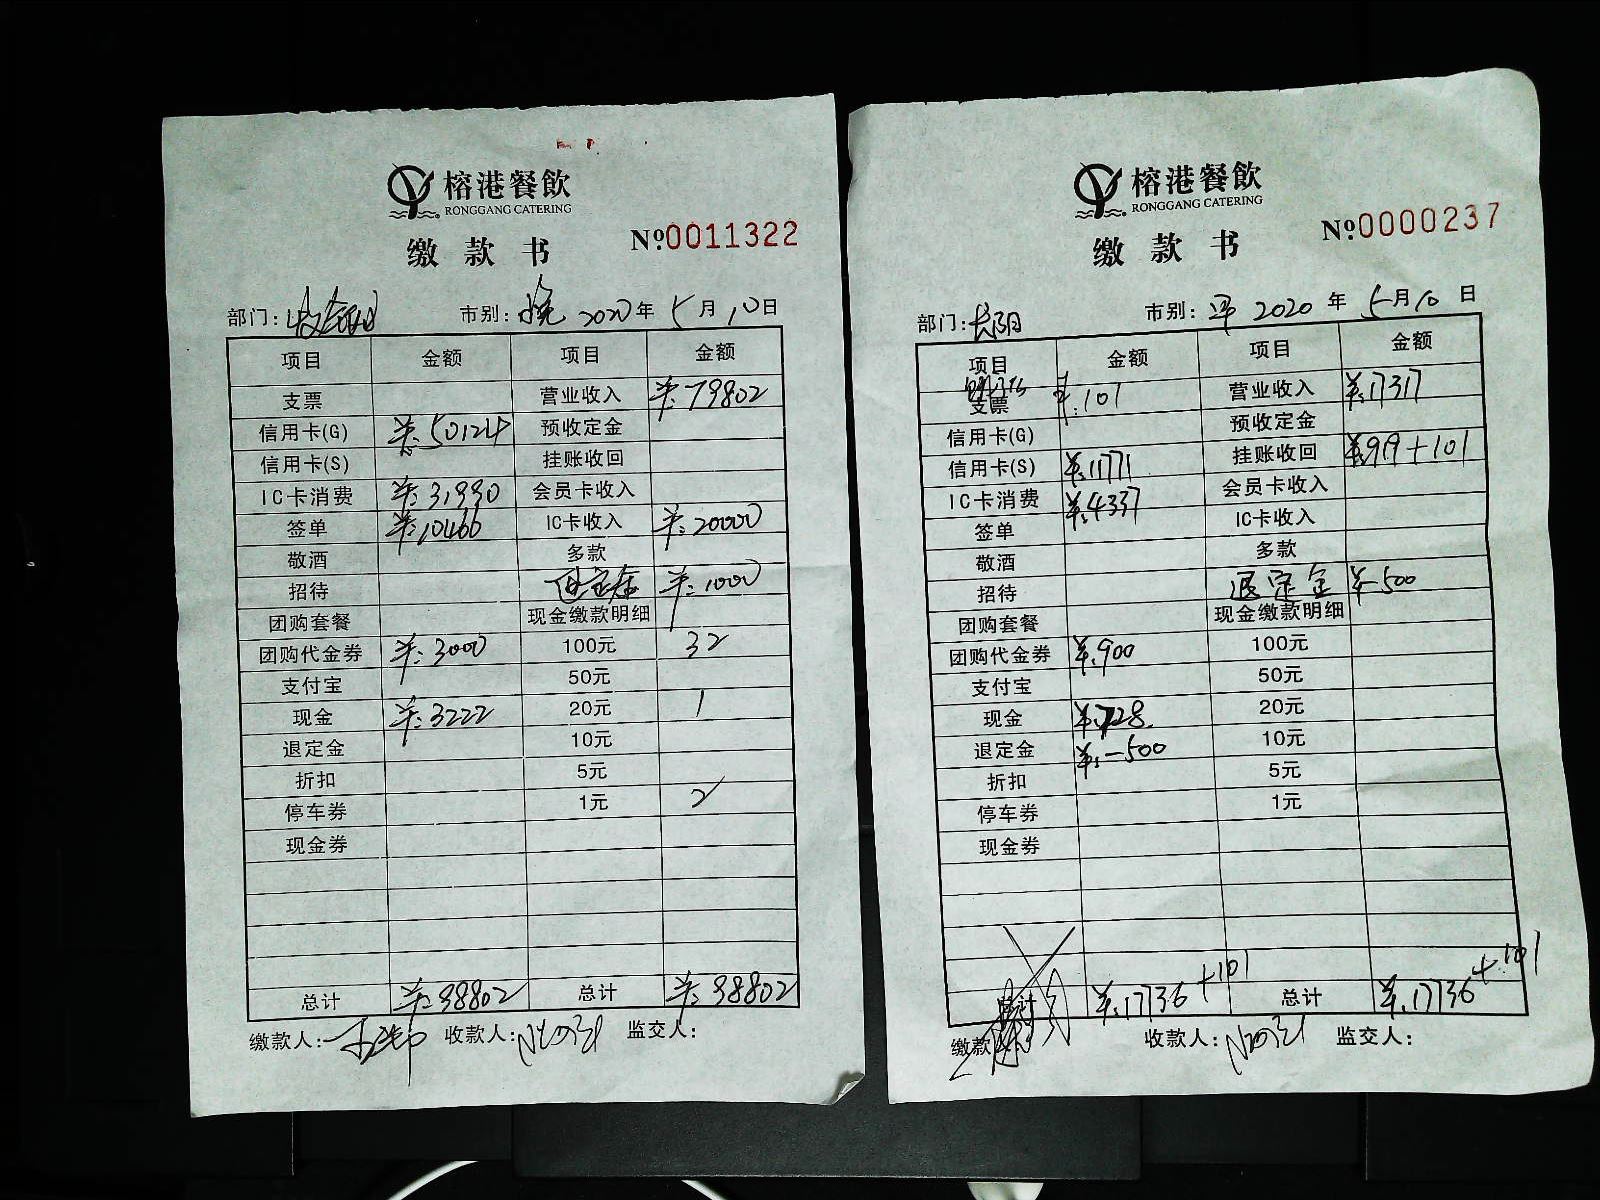 榕港餐飲
RONGGANG CATERING
缴款书
№0011322
部门: 市别: 晚 2020年 5月10日
项目 金额 项目 金额
支票 营业收入 ¥:79802
信用卡(G) ¥:50124 预收定金
信用卡(S) 挂账收回
IC卡消费 ¥:31990 会员卡收入
签单 ¥:10466 IC卡收入 ¥:20000
敬酒 多款
招待 退定金 ¥:1000
团购套餐 现金缴款明细
团购代金券 ¥:3000 100元 32
支付宝 50元
现金 ¥:3222 20元 1
退定金 10元
折扣 5元
停车券 1元 2
现金券
总计 ¥:98802 总计 ¥:98802
缴款人: 收款人: 监交人:
榕港餐飲
RONGGANG CATERING
缴款书
№0000237
部门: 长阳 市别: 早 2020年 5月10日
项目 金额 项目 金额
支票 ¥:101 营业收入 ¥:17317
信用卡(G) 预收定金
信用卡(S) ¥:11771 挂账收回 ¥:919+101
IC卡消费 ¥:4337 会员卡收入
签单 IC卡收入
敬酒 多款
招待 退定金 ¥-500
团购套餐 现金缴款明细
团购代金券 ¥:900 100元
支付宝 50元
现金 ¥:728 20元
退定金 ¥:-500 10元
折扣 5元
停车券 1元
现金券
总计 ¥:17736+101 总计 ¥:17736+101
缴款 收款人: 监交人: